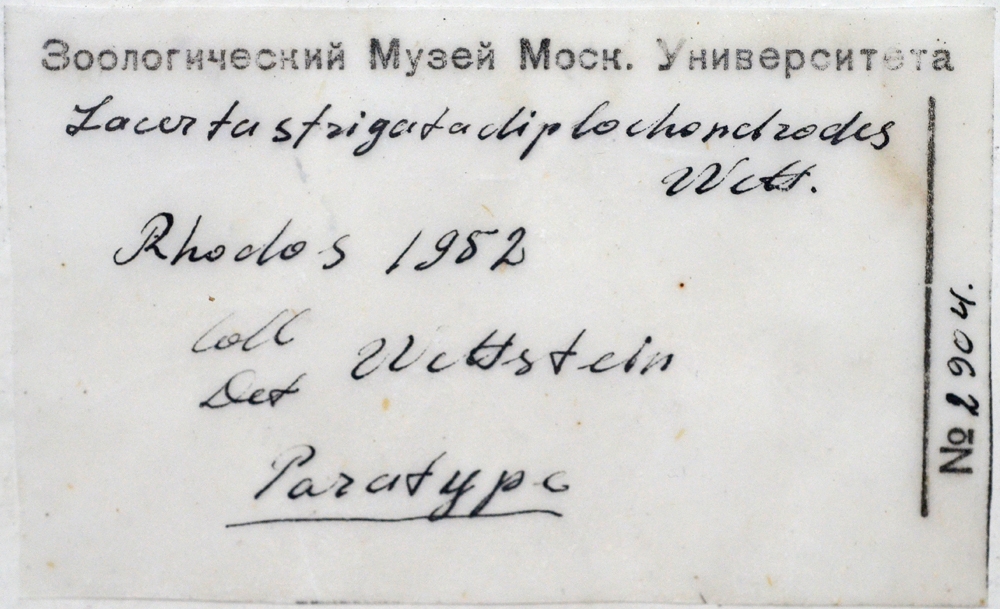 Зоологический Музей Моск. Университета
Lacerta strigata diplochondrodes
Wettst.
Rhodos 1952
Coll
Det
Wettstein
Paratype
№ 2904.